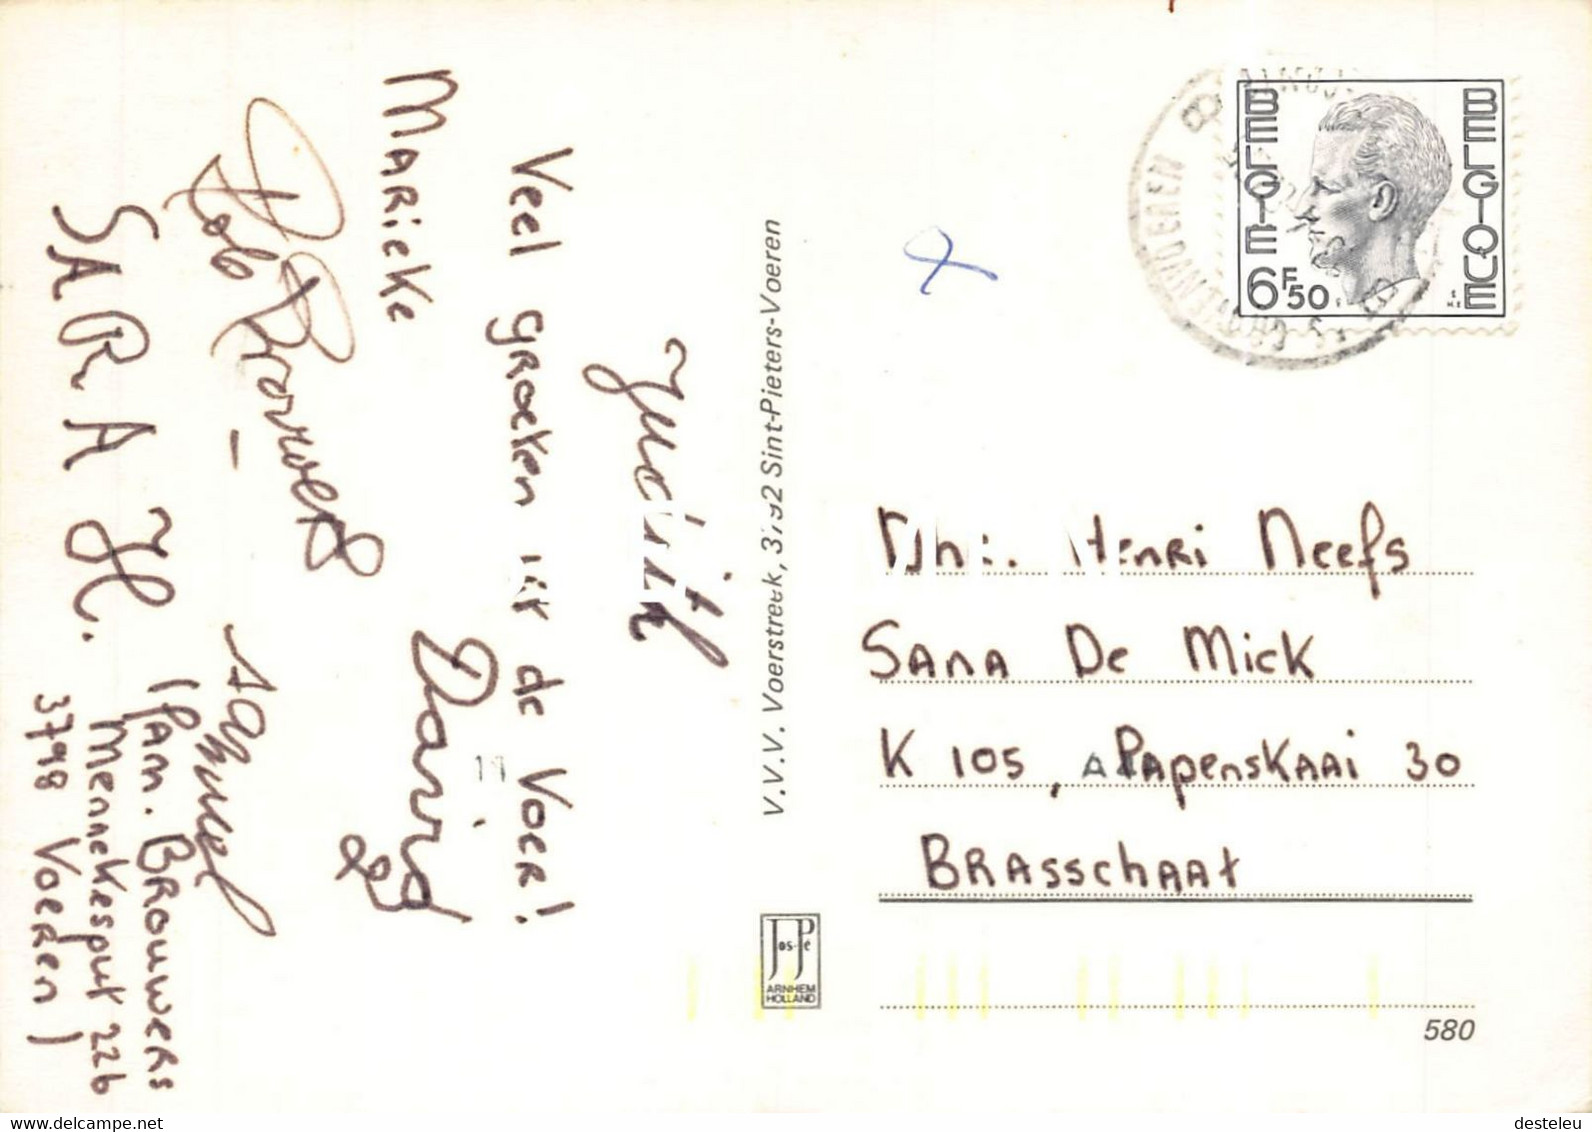 Veel groeten uit de Voer!
Marieke
Judith
David
Rob Brouwers
Samuel
SARA H.
(Fam. Brouwers
Mennekesput 22b
3798 Voeren)
V.V.V. Voerstreek, 3792 Sint-Pieters-Voeren
Jos-Pé
ARNHEM
HOLLAND
BELGIË
BELGIQUE
6F50
Henri Neefs
Sana De Mick
K 105, Papenskaai 30
Brasschaat
580
desteleu